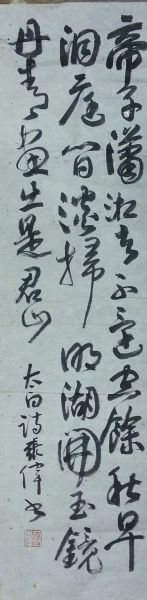 帝子瀟湘去不還空餘秋草
洞庭間淡掃明湖開玉鏡
丹青畫出是君山
太白詩偉書